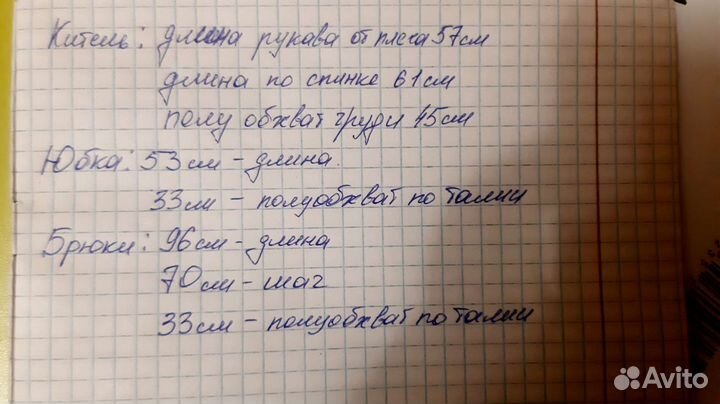 Китель: длина рукава от плеча 57см
длина по спинке 61см
полу обхват груди 45см
Юбка: 53см - длина.
33см - полуобхват по талии
Брюки: 96см - длина
70см - шаг
33см - полуобхват по талии
Avito